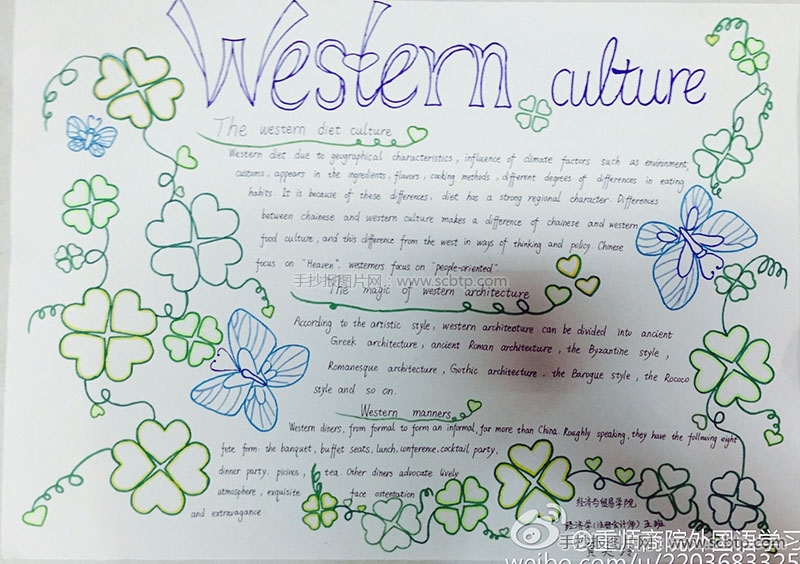 Western culture
The western diet culture
Western diet due to geographical characteristics, influence of climate factors such as environment,
customs, appears in the ingredients, flavors, cooking methods, different degrees of differences in eating
habits. It is because of these differences, diet has a strong regional character. Differences
between chainese and western culture makes a difference of chainese and western
food culture, and this difference from the west in ways of thinking and policy. Chinese
focus on "Heaven". westerners focus on "people-oriented".
手抄报图片网 www.scbtp.com
The magic of western architecture
According to the artistic style, western architecture can be divided into ancient
Greek architecture, ancient Roman architecture, the Byzantine style,
Romanesque architecture, Gothic architecture. the Baroque style, the Rococo
style and so on.
Western manners
Western diners, from formal to form an informal, far more than China. Roughly speaking, they have the following eight
fete form: the banquet, buffet seats, lunch, conference, cocktail party,
dinner party. picincs, tea. Other diners advocate lively
atmosphere, exquisite face ostentation
and extravagance.
经济与贸易学院
经济学(注册会计师)五班
手抄报图片网 www.scbtp.com
@重师商院外国语学习
weibo.com/u/2203683325